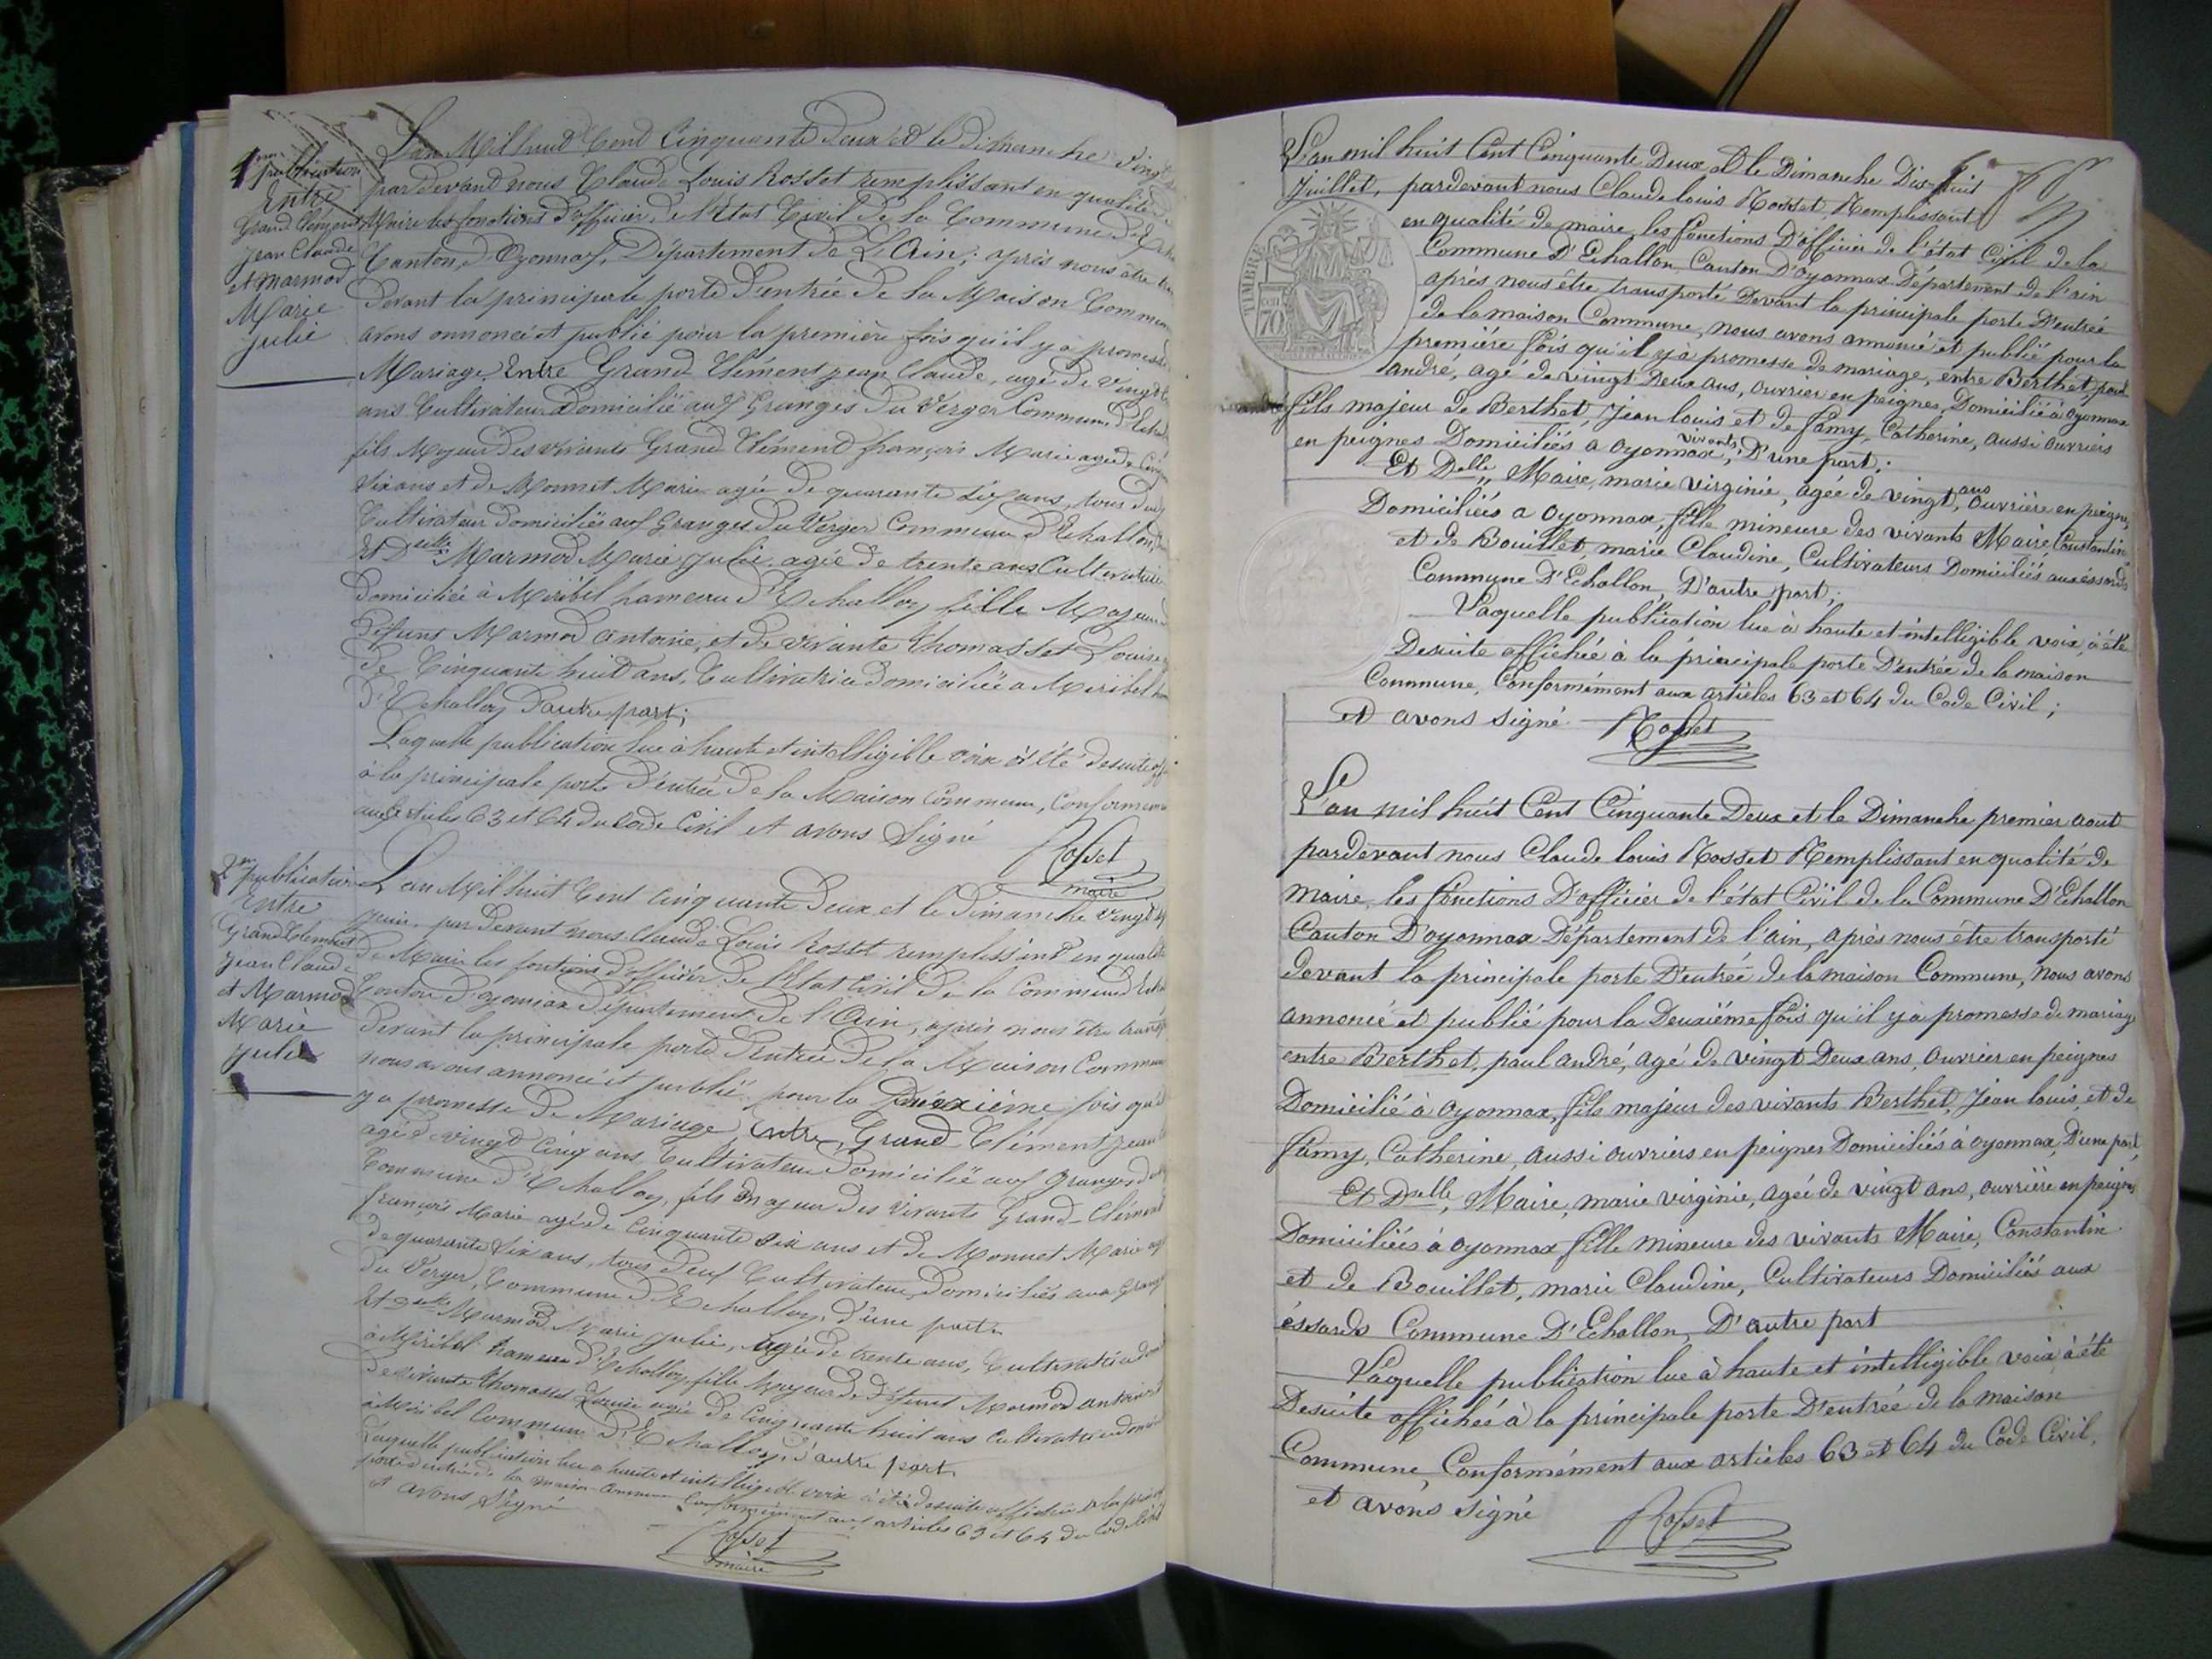 1ère publication
Entre
Grand Clément
Jean Claude
et Marmod
Marie
Julie
L'an Mil huit Cent Cinquante Deux et le Dimanche vingt
pardevant nous Claude Louis Rosset remplissant en qualité de
Maire les fonctions d'officier de l'Etat Civil de la Commune d'Echa
Canton d'Oyonnax, Département de L'Ain; après nous être tra
devant la principale porte d'entrée de la Maison Commun
avons annoncé et publié pour la première fois qu'il y a promesse
Mariage, Entre Grand Clément jean Claude, agé de vingt
ans Cultivateur Domicilié aux Granges du Verger Commune d'Echal
fils Majeur des vivants Grand Clément françois Marie agé de Cinq
six ans et de Monnet Marie agée de quarante six ans, tous deux
Cultivateur domiciliés aux Granges du Verger Commune d'Echallon,
Et Delle Marmod Marie Julie agée de trente ans Cultivatrice
domiciliée à Miribel hameau d'Echallon, fille Majeure
Défunt Marmod antoine, et de vivante thomasset Louise
de Cinquante huit ans, Cultivatrice domiciliée a Miribel ham
d'Echallon d'autre part;
Laquelle publication lue à haute et intelligible voix à été desuite affi
à la principale porte d'entrée de la Maison Commune, Conformeme
aux articles 63 et 64 du Code Civil et avons Signé
Rosset
maire
2me publication
Entre
Grand Clément
Jean Claude
et Marmod
Marie
Julie
L'an Mil huit Cent cinquante deux et le Dimanche vingt
juin, par devant nous Claude Louis Rosset remplissant en qualité
de Maire les fontions d'officier de l'Etat Civil de la Commune d'Echal
Canton d'oyonnax Département de l'Ain, après nous être transp
devant la principale porte d'entrée de la Maison Commune
nous avons annoncé et publié pour la Deuxième fois qu'il
y a promesse de Mariage, Entre, Grand Clément jean
agé de vingt Cinq ans, Cultivateur domicilié aux Granges du
Commune d'Echallon, fils Majeur des vivants Grand-Clément
françois Marie agé de Cinquante six ans et de Monnet Marie ag
de quarante six ans, tous deux Cultivateur, domiciliés aux Grang
du Verger, Commune d'Echallon, d'une part.
Et Delle Marmod Marie Julie, agée de trente ans, Cultivatrice domi
à Miribel hameau d'Echallon, fille Majeur de défunt Marmod antoine et
de vivante thomasset Louise agée de Cinquante huit ans Cultivatrice domici
à Miribel Commune d'Echallon, d'autre part.
Laquelle publication lue a haute et intelligible voix à été desuite affichée à la princi
porte d'entrée de la maison Commune Conformément aux articles 63 et 64 du Code Civil
et avons Signé
Rosset
maire
L'an mil huit Cent Cinquante Deux et le Dimanche Dix-huit
Juillet, pardevant nous Claude louis Rosset, Remplissant
en qualité de maire, les fonctions D'officier de l'état Civil de la
Commune D'Echallon, Canton D'oyonnax Département de l'ain
après nous être transporté Devant la principale porte D'entrée
de la maison Commune, nous avons annoncé et publié pour la
première fois qu'il y à promesse de mariage, entre Berthet, paul
andré, agé de vingt Deux ans, ouvrier en peignes, Domicilié à oyonnax
fils majeur de Berthet, Jean louis et de famy, Catherine, aussi ouvriers
en peignes Domiciliés a oyonnax, vivants, D'une part;
Et Delle, Maire, marie virginie, agée de vingt ans, ouvrière en peignes,
Domiciliées a oyonnax, fille mineure des vivants Maire, Constantin
et de Bouillet, marie Claudine, Cultivateurs Domiciliés aux éssards
Commune D'Echallon, D'autre part;
Laquelle publication lue à haute et intelligible voix, à été
Desuite affichée à la principale porte D'entrée de la maison
Commune, Conformément aux articles 63 et 64 du Code Civil;
et avons signé Rosset
TIMBRE
70
L'an mil huit Cent Cinquante Deux et le Dimanche premier aout
pardevant nous Claude louis Rosset Remplissant en qualité de
maire, les fonctions D'officier de l'état Civil de la Commune D'Echallon
Canton D'oyonnax Département de l'ain, après nous être transporté
devant la principale porte D'entrée de la maison Commune, nous avons
annoncé et publié pour la Deuxième fois qu'il y à promesse de mariage
entre Berthet, paul andré, agé de vingt Deux ans, ouvrier en peignes
Domicilié à oyonnax, fils majeur des vivants Berthet, Jean louis, et de
famy, Catherine, aussi ouvriers en peignes Domiciliés à oyonnax, D'une part,
Et Delle, Maire, marie virginie, agée de vingt ans, ouvrière en peignes
Domiciliées à oyonnax fille mineure des vivants Maire, Constantin
et de Bouillet, marie Claudine, Cultivateurs Domiciliés aux
éssards Commune D'Echallon, D'autre part
Laquelle publication lue à haute et intelligible voix à été
Desuite affichée à la principale porte D'entrée de la maison
Commune, Conformément aux articles 63 et 64 du Code Civil,
et avons signé
Rosset